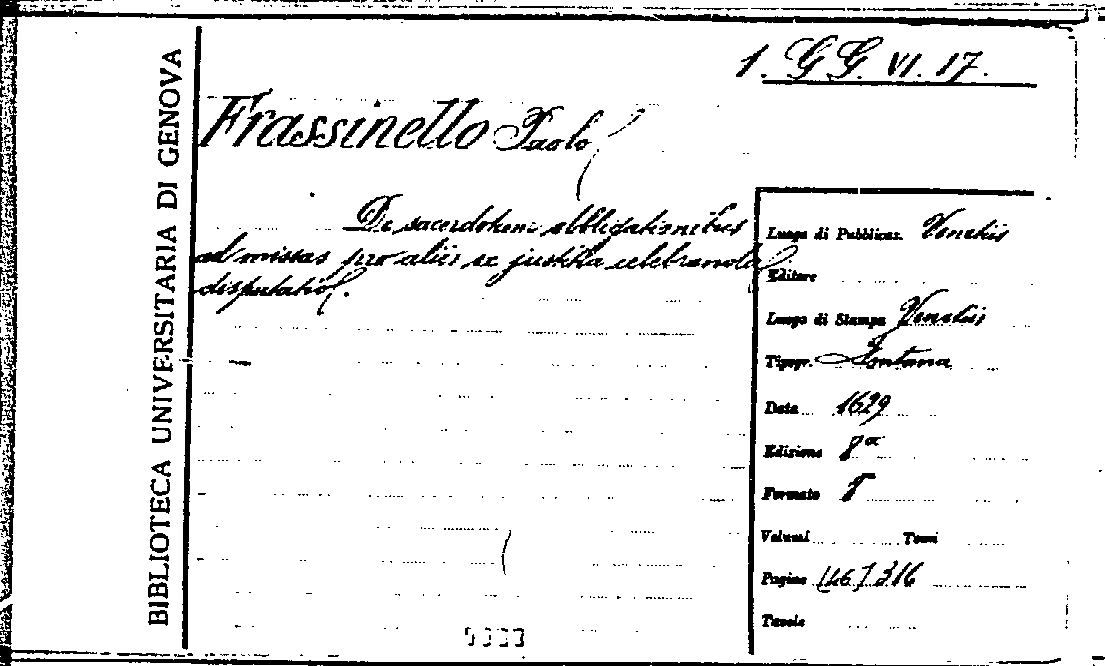 1. GG. VI. 17.
BIBLIOTECA UNIVERSITARIA DI GENOVA
Frassinello Paolo
De sacerdotum obbligationibus
ad missas pro aliis ex justitia celebrandas
disputatio.
Luogo di Pubblicaz. Venetiis
Editore
Luogo di Stampa Venetiis
Tipogr. Fontana
Data 1629
Edizione 8ª
Formato 8
Volumi Tomi
Pagine 316
Tavole